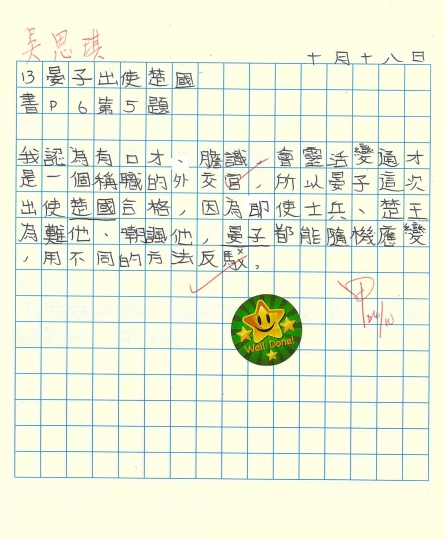 吳思琪
十月十八日
13 晏子出使楚國
書P 6 第5題
我認為有口才、膽識、會靈活變通才
是一個稱職的外交官，所以晏子這次
出使楚國合格，因為即使士兵、楚王
為難他、嘲諷他，晏子都能隨機應變
，用不同的方法反駁。
甲
24/10
Well Done!